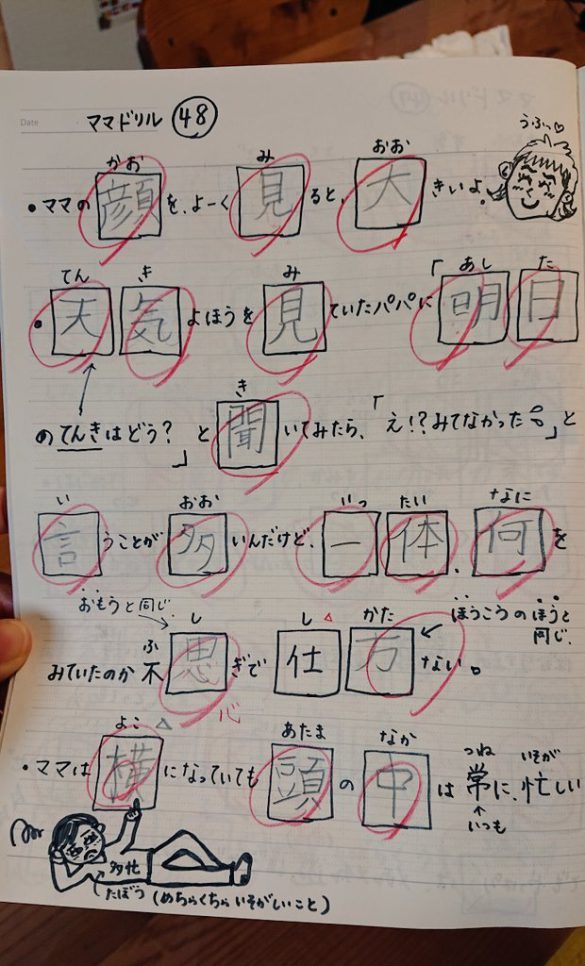 Date
ママドリル ㊽
うふっ♡
かお み おお
・ママの顔を、よーく見ると、大きいよ。
てん き み あし た
・天気よほうを見ていたパパに「明日
き
のてんきはどう?」と聞いてみたら、「え!?みてなかった」と
い おお いっ たい なに
言うことが多いんだけど、一体、何を
おもうと同じ ほうこうのほうと同じ.
ふ し し かた
みていたのか不思ぎで仕方ない。
心
よこ あたま なか つね いそが
・ママは横になっていても頭の中は常に、忙しい
いつも
多忙
たぼう(めちゃくちゃいそがしいこと)